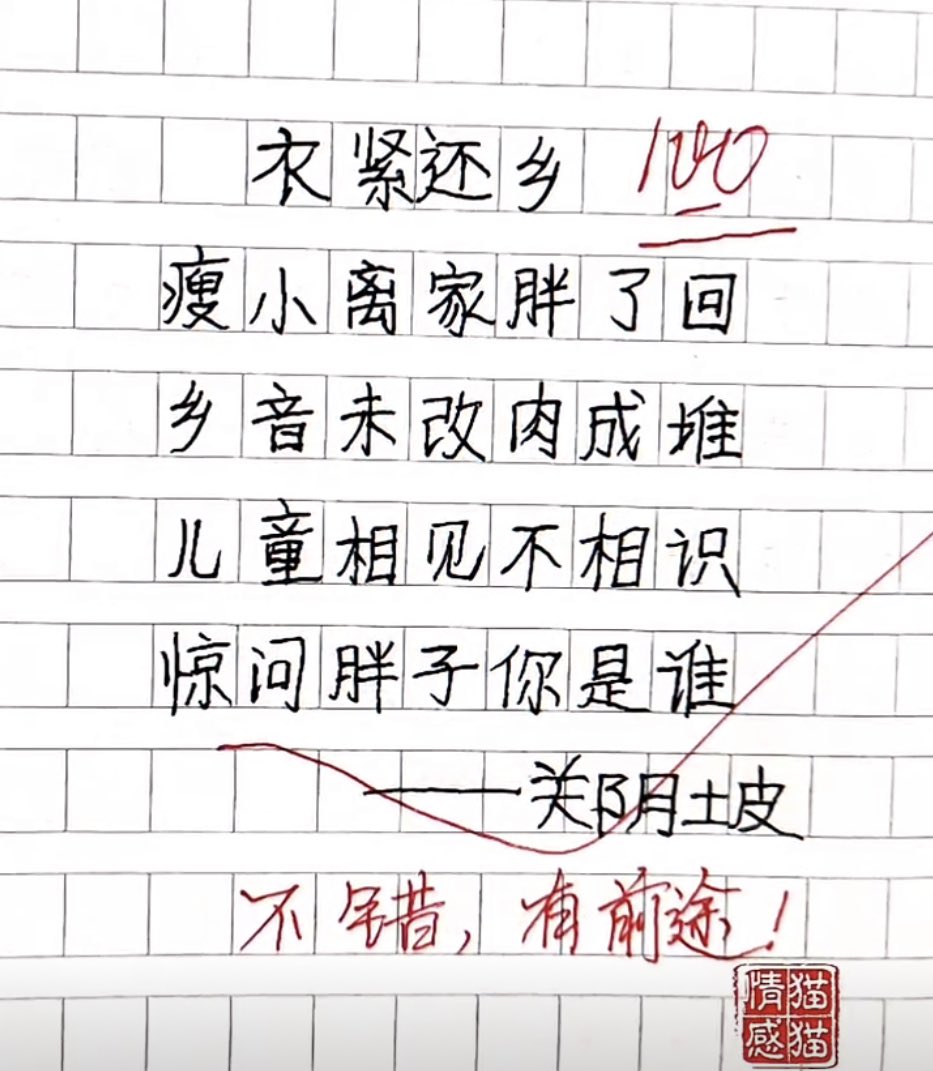 衣紧还乡 100
瘦小离家胖了回
乡音未改肉成堆
儿童相见不相识
惊问胖子你是谁
——郑阴坡
不错，有前途！
情感猫猫